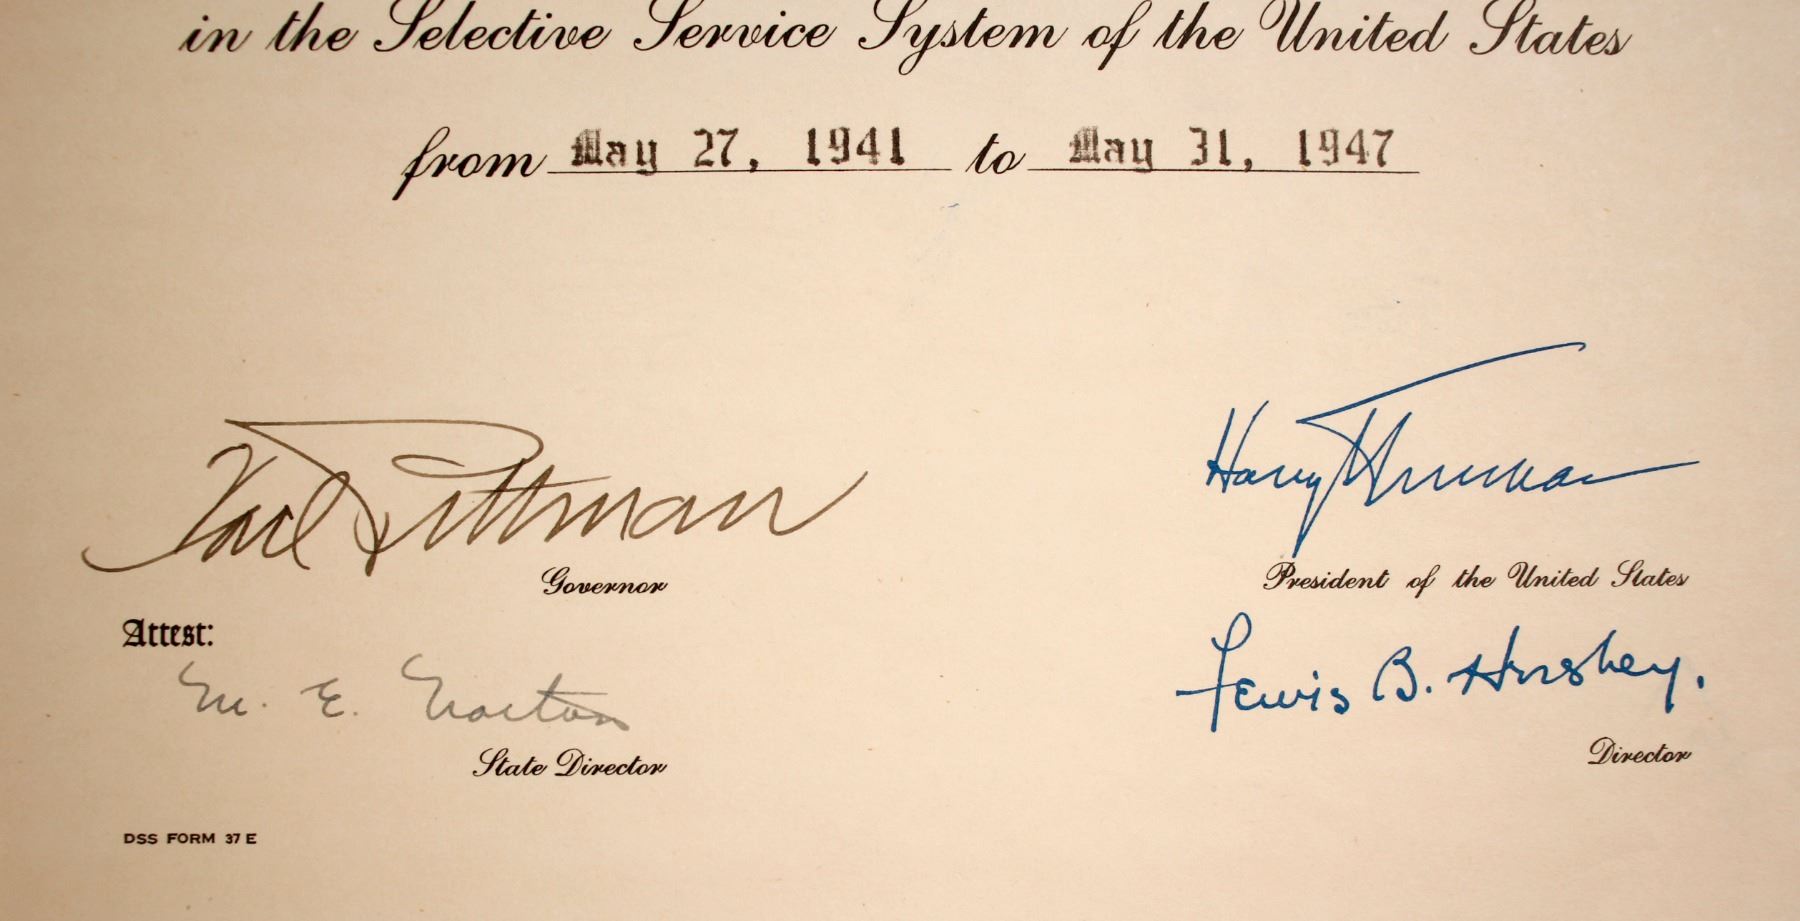 in the Selective Service System of the United States
from May 27, 1941 to May 31, 1947
Vail Pittman
Governor
Harry Truman
President of the United States
Attest:
M. E. Norton
State Director
Lewis B. Hershey.
Director
DSS FORM 37 E